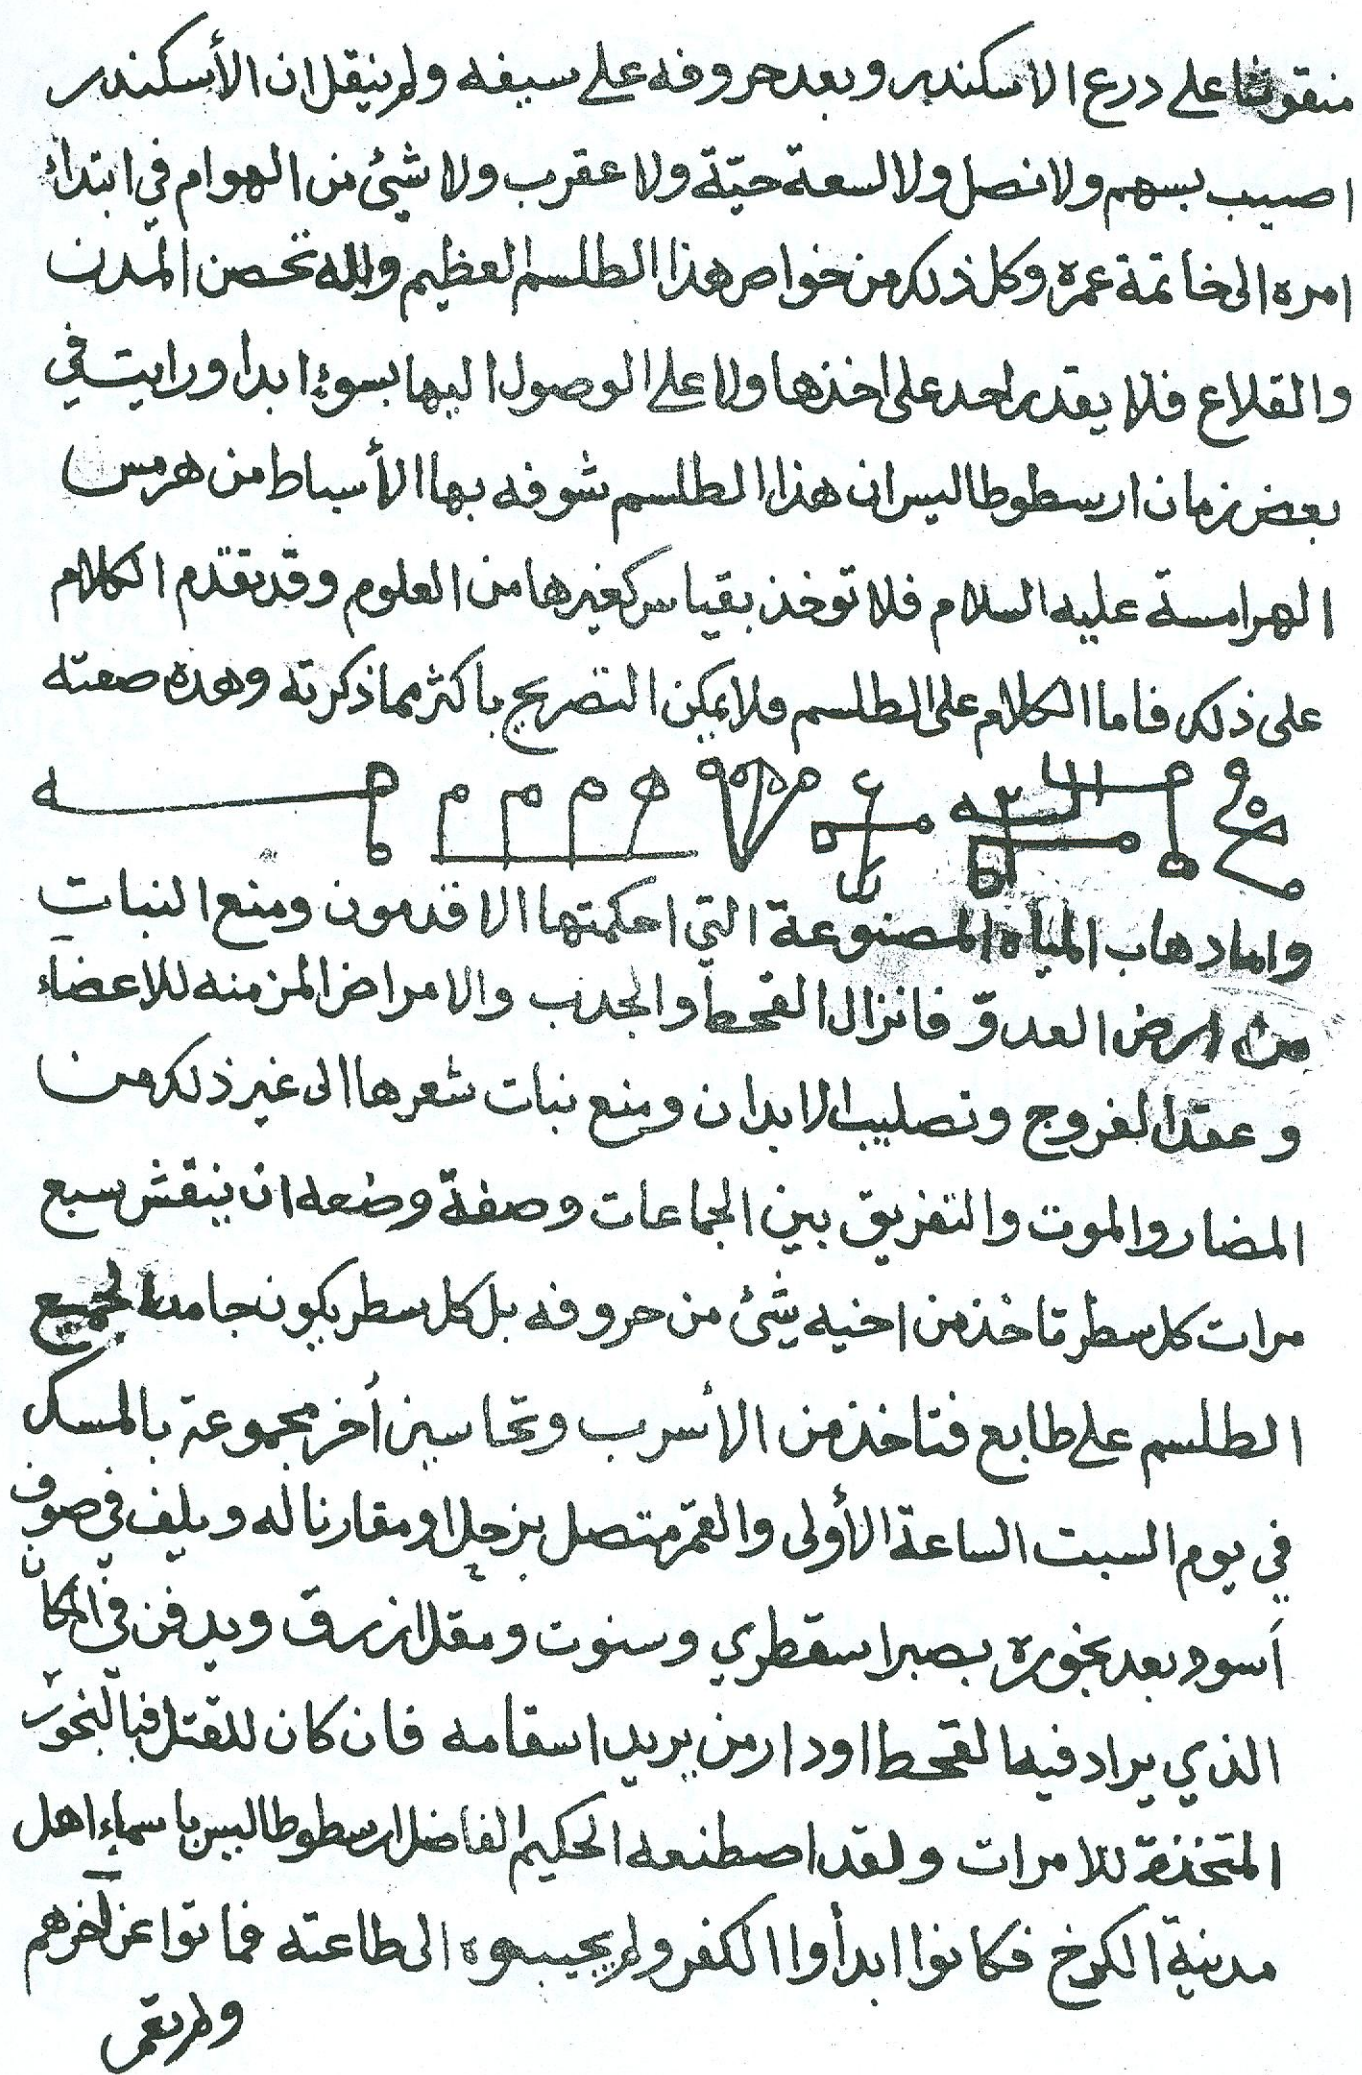 منقوشا على درع الاسكندر وبعد حروفه على سيفه ولم ينقل ان الأسكندر
اصيب بسهم ولا نصل ولا لسعة حيّة ولا عقرب ولا شيئ من الهوام في ابتداء
امره الى خاتمة عمره وكل ذلك من خواص هذا الطلسم العظيم وله تحصن المدن
والقلاع فلا يقدر احد على اخذها ولا على الوصول اليها بسوءٍ ابدا ورايت في
بعض زمان ارسطوطاليس ان هذا الطلسم شوفه بها الأسباط من هرمس
الهرامسة عليه السلام فلا توخذ بقياس كغيرها من العلوم وقد تقدّم الكلام
على ذلك فاما الكلام على الطلسم فلا يمكن التصريح باكثر مما ذكرته وهذه صفته
واما دهاب المياه المصنوعة التي احكمتها الاقدمون ومنع النبات
من ارض العدوّ فانزال القحط والجدب والامراض المزمنه للاعضاء
وعقد الفروج وتصليب الابدان ومنع نبات شعرها الى غير ذلك من
المضار والموت والتفريق بين الجماعات وصفة وضعه ان ينقش سبع
مرات كل سطر تاخذ من اخيه شيئ من حروفه بل كل سطر يكون جامعا لجميع
الطلسم على طابع فتاخذ من الأسرب ونحاسين أخر مجموعة بالمسك
في يوم السبت الساعة الأولى والقمر متصل بزحل او مقارنا له ويلف في صوف
أسود بعد بخوره بصبر اسقطري وسنوت ومقل ازرق ويدفن في المكان
الذي يراد فيه القحط او دار من يريد اسقامه فان كان للقتل فبالبخور
المتخذة للامرات ولقد اصطنعه الحكيم الفاضل ارسطوطاليس باسماء اهل
مدينة الكرخ فكانوا ابدأوا الكفر ولم يجيبوه الى طاعته فماتوا عن آخرهم
ولم يبقى